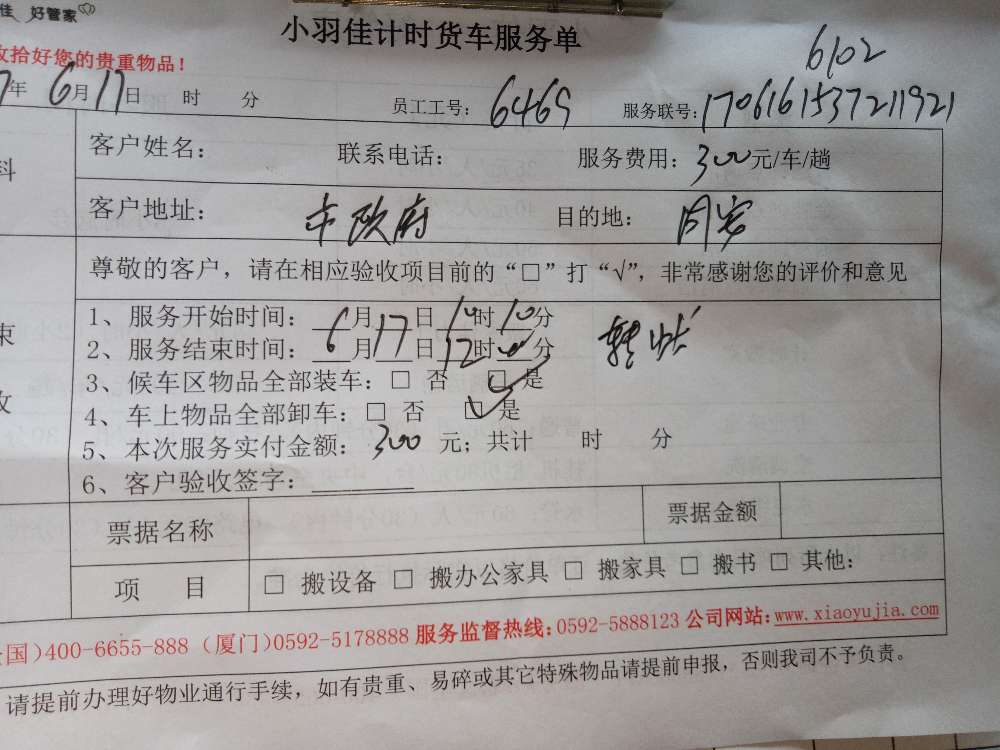 佳 好管家
小羽佳计时货车服务单
6102
收拾好您的贵重物品！
7年 6月17日 时 分 员工工号：6469 服务联号：1706161537211921
料
客户姓名： 联系电话： 服务费用：300元/车/趟
客户地址：市政府 目的地：同安
尊敬的客户，请在相应验收项目前的“□”打“√”，非常感谢您的评价和意见
1、服务开始时间：6月17日10时10分 转帐
束
2、服务结束时间：月 日12时 分
3、候车区物品全部装车：□ 否 ☑ 是
收
4、车上物品全部卸车：□ 否 ☑ 是
5、本次服务实付金额：300 元；共计 时 分
6、客户验收签字：
票据名称 票据金额
项 目 □ 搬设备 □ 搬办公家具 □ 搬家具 □ 搬书 □ 其他：
全国）400-6655-888（厦门）0592-5178888 服务监督热线：0592-5888123 公司网站：www.xiaoyujia.com
请提前办理好物业通行手续，如有贵重、易碎或其它特殊物品请提前申报，否则我司不予负责。